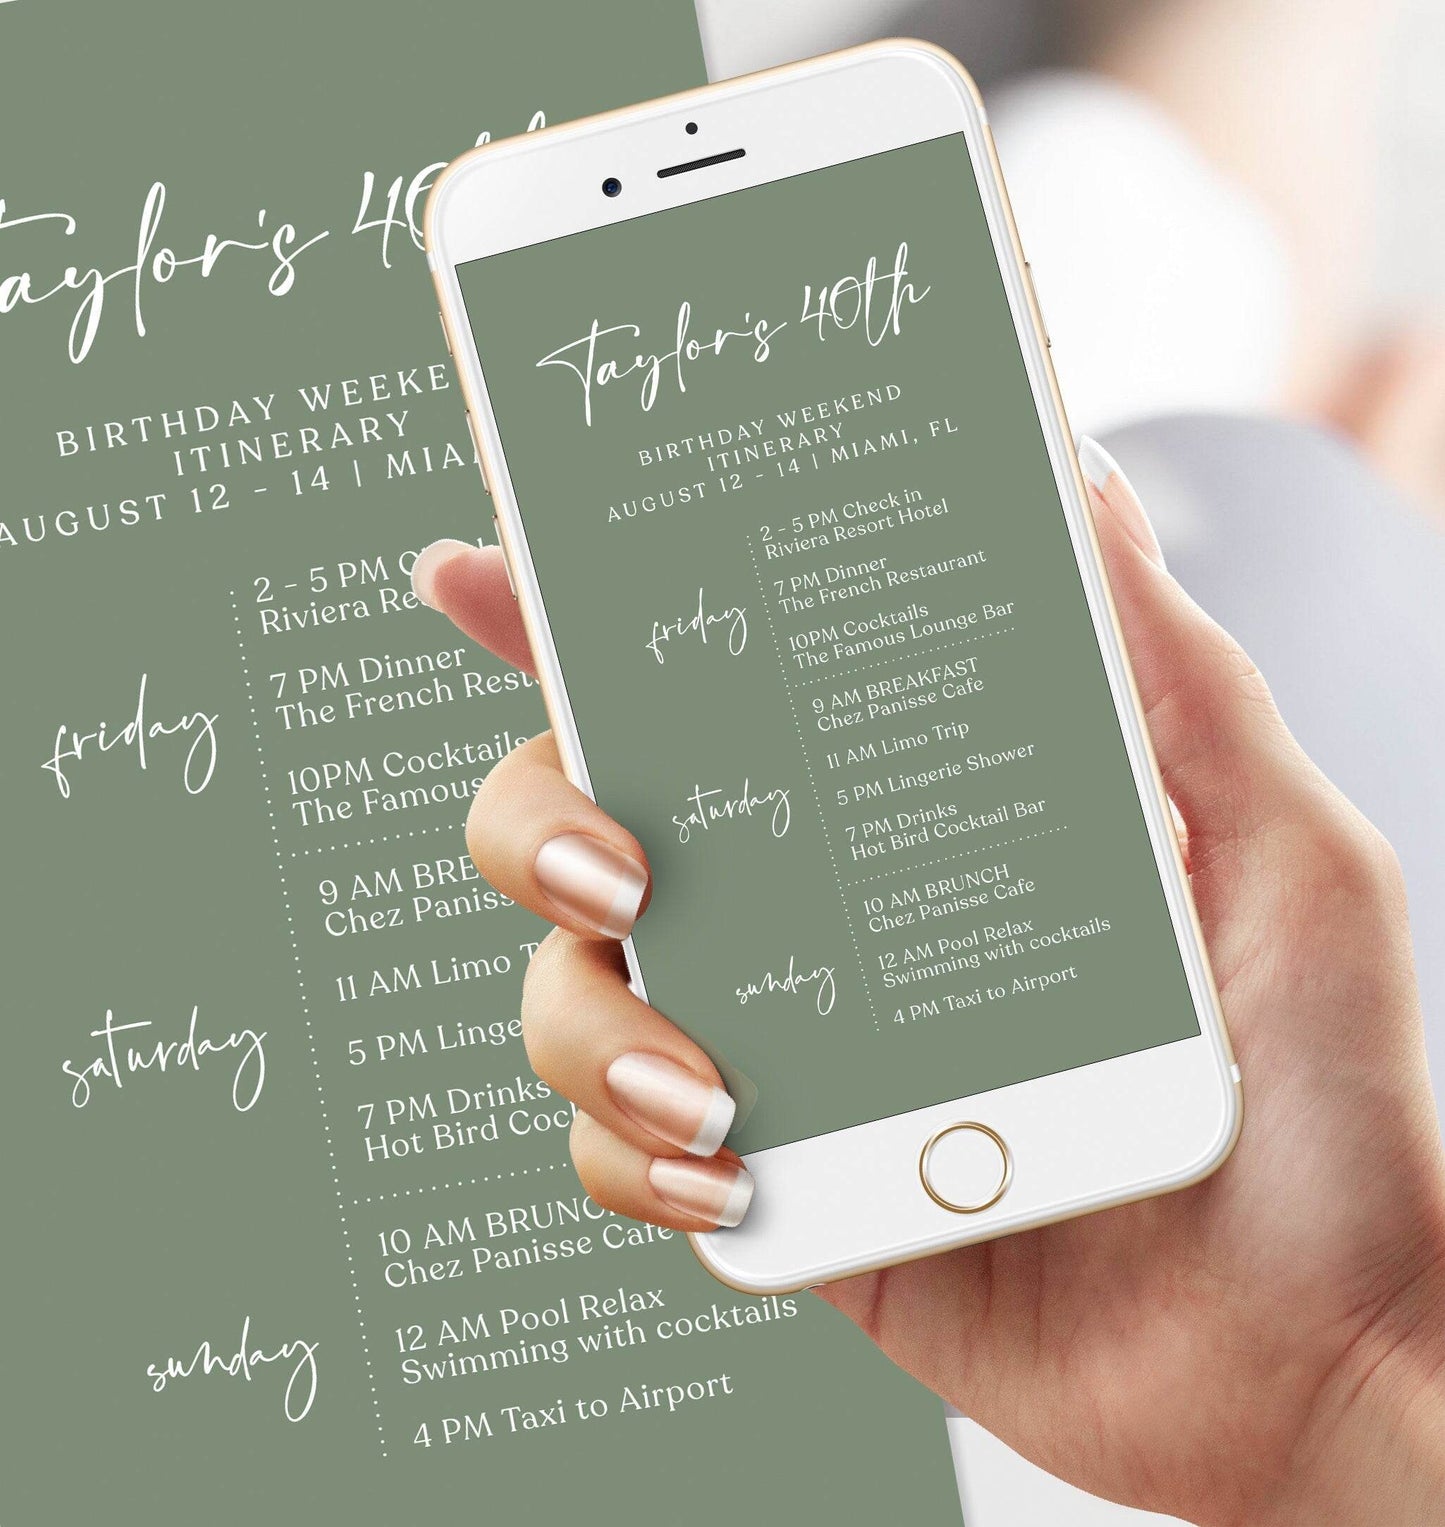 Taylor's 40th
BIRTHDAY WEEKE
ITINERARY
AUGUST 12 - 14 | MIA
friday
2 - 5 PM
Riviera
7 PM Dinner
The French
10PM Cocktails
The Famous
saturday
9 AM
Chez
11 AM Limo
5 PM
7 PM Drinks
Hot Bird
sunday
10 AM
Chez Panisse Cafe
12 AM Pool Relax
Swimming with cocktails
4 PM Taxi to Airport
Taylor's 40th
BIRTHDAY WEEKEND
ITINERARY
AUGUST 12 - 14 | MIAMI, FL
friday
2 - 5 PM Check in
Riviera Resort Hotel
7 PM Dinner
The French Restaurant
10PM Cocktails
The Famous Lounge Bar
saturday
9 AM BREAKFAST
Chez Panisse Cafe
11 AM Limo Trip
5 PM Lingerie Shower
7 PM Drinks
Hot Bird Cocktail Bar
sunday
10 AM BRUNCH
Chez Panisse Cafe
12 AM Pool Relax
Swimming with cocktails
4 PM Taxi to Airport